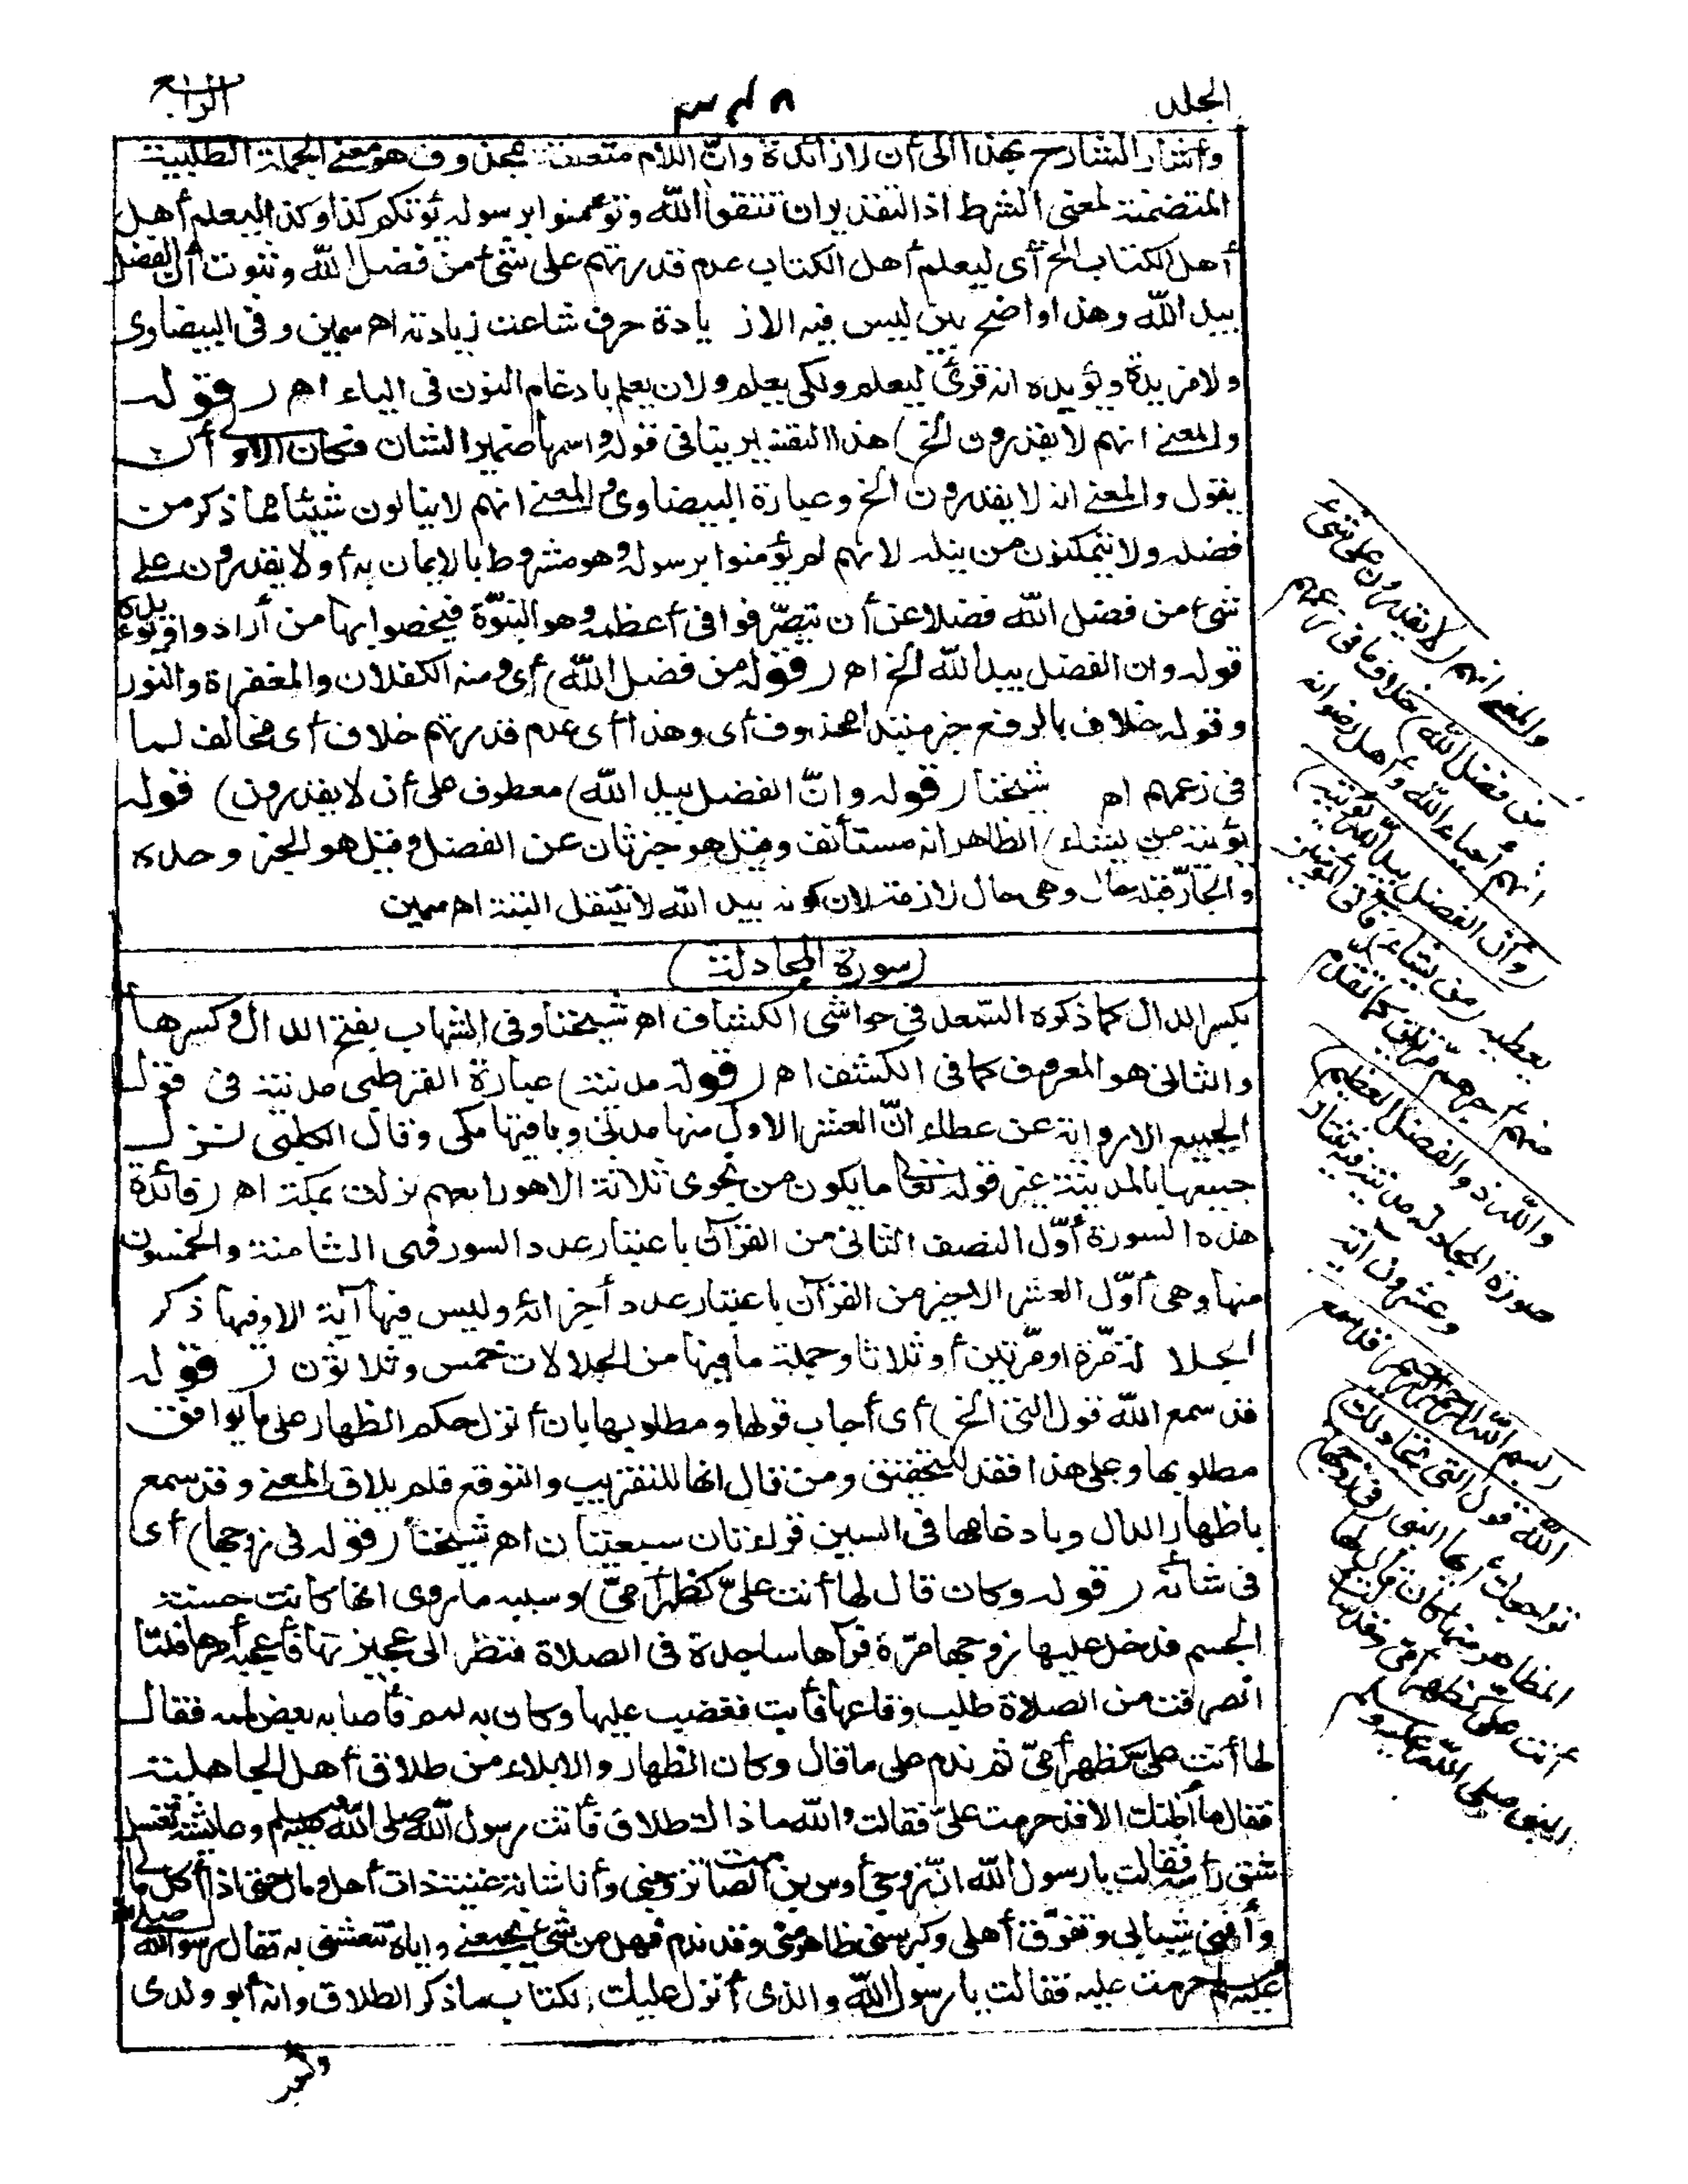 الجلد
الرابع
وأشار الشارح بهذا الى أن لا زائدة وانّ اللام متعلقة بمحذوف هو معنى الجملة الطلبية
المتضمنة لمعنى الشرط اذ التقدير ان تتقوا الله وتؤمنوا برسوله يؤتكم كذا وكذا ليعلم أهل
أهل الكتاب الخ أى ليعلم أهل الكتاب عدم قدرتهم على شئ من فضل الله وثبوت أن الفضل
بيد الله وهذا واضح بين ليس فيه الا زيادة حرف شاعت زيادته اه سمين وفى البيضاوى
ولا مزيدة ويؤيده انه قرئ ليعلم ولكى يعلم ولان يعلم بادغام النون فى الياء اه (قوله
والمعنى انهم لا يقدرون الخ) هذا التقدير ينافى قوله واسمها ضمير الشان فكان الاولى أن
يقول والمعنى انه لا يقدرون الخ وعبارة البيضاوى والمعنى انهم لا ينالون شيئا مما ذكر من
فضله ولا يتمكنون من نيله لانهم لم يؤمنوا برسوله وهو مشروط بالايمان به أو لا يقدرون على
شئ من فضل الله فضلا عن أن يتصرّفوا فى أعظمه وهو النبوّة فيخصوا بها من أرادوا ويؤيده
قوله وان الفضل بيد الله الخ اه (قوله من فضل الله) أى ومنه الكفلان والمغفرة والنور
وقوله خلاف بالرفع خبر مبتدا محذوف أى وهذا أى عدم قدرتهم خلاف أى مخالف لما
فى زعمهم اه شيخنا (قوله وانّ الفضل بيد الله) معطوف على أن لا يقدرون) قوله
يؤتيه من يشاء) الظاهر انه مستأنف وقيل هو خبر ثان عن الفضل وقيل هو الخبر وحده
والجارّ قبله حال وهى حال لازمة لان كونه بيد الله لا ينتقل البتة اه سمين
(سورة المجادلة)
بكسر الدال كما ذكره السّعد فى حواشى الكشاف اه شيخنا وفى الشهاب بفتح الدال وكسرها
والثانى هو المعروف كما فى الكشف اه (قوله مدنية) عبارة القرطبى مدنية فى قول
الجميع الا رواية عن عطاء انّ العشر الاول منها مدنىّ وباقيها مكى وقال الكلبى نزل
جميعها بالمدينة غير قوله تعالى ما يكون من نجوى ثلاثة الا هو رابعهم نزلت بمكة اه (فائدة
هذه السورة أوّل النصف الثانى من القرآن باعتبار عدد السور فهى الثامنة والخمسون
منها وهى أوّل العشر الاخير من القرآن باعتبار عدد أجزائه وليس فيها آية الا وفيها ذكر
الجلالة مرّة او مرّتين أو ثلاثا وجملة ما فيها من الجلالات خمس وثلاثون (قوله
قد سمع الله قول التى الخ) أى أجاب قولها ومطلوبها بان أنزل حكم الظهار على ما يوافق
مطلوبها وعلى هذا فقد للتحقيق ومن قال انها للتقريب والتوقع فلم يلاق المعنى وقد سمع
باظهار الدال وبادغامها فى السين قراءتان سبعيتان اه شيخنا (قوله فى زوجها) أى
فى شأنه (قوله وكان قال لها أنت علىّ كظهر أمىّ) وسببه ما روى انها كانت حسنة
الجسم فدخل عليها زوجها مرّة فرآها ساجدة فى الصلاة فنظر الى عجيزتها فأعجبه أمرها فلمّا
انصرفت من الصلاة طلب وقاعها فأبت فغضب عليها وكان به لمم فأصابه بعض لممه فقال
لها أنت علىّ كظهر أمىّ ثم ندم على ما قال وكان الظهار والايلاء من طلاق أهل الجاهلية
فقال ما أظنك الا قد حرمت علىّ فقالت والله ما ذاك طلاق فأتت رسول الله صلى الله عليه وسلم وعائشة تغسل
شق رأسه فقالت يا رسول الله انّ زوجى أوس بن الصامت تزوجنى وأنا شابة غنية ذات أهل ومال حتى اذا أكل مالى
وأفنى شبابى وتفرّق أهلى وكبر سنى ظاهر منى وقد ندم فهل من شئ يجمعنى واياه تنعشنى به فقال رسول الله صلى الله
عليه وسلم حرمت عليه فقالت يا رسول الله والذى أنزل عليك الكتاب ما ذكر الطلاق وانه أبو ولدى
والمعنى انهم (لا يقدرون على شئ
من فضل الله) خلاف ما فى زعمهم
انهم أحباء الله وأهل رضوانه
(وأنّ الفضل بيد الله يؤتيه)
يعطيه (من يشاء) فآتى المؤمنين
منهم أجرهم مرّتين كما تقدّم
والله ذو الفضل العظيم)
سورة المجادلة مدنية ثنتان
وعشرون آية
(بسم الله الرحمن الرحيم) قد سمع
الله قول التى تجادلك)
تراجعك أيها النبى (فى زوجها)
المظاهر منها كان قال لها
أنت علىّ كظهر أمى وقد سألت
النبى صلى الله عليه وسلم